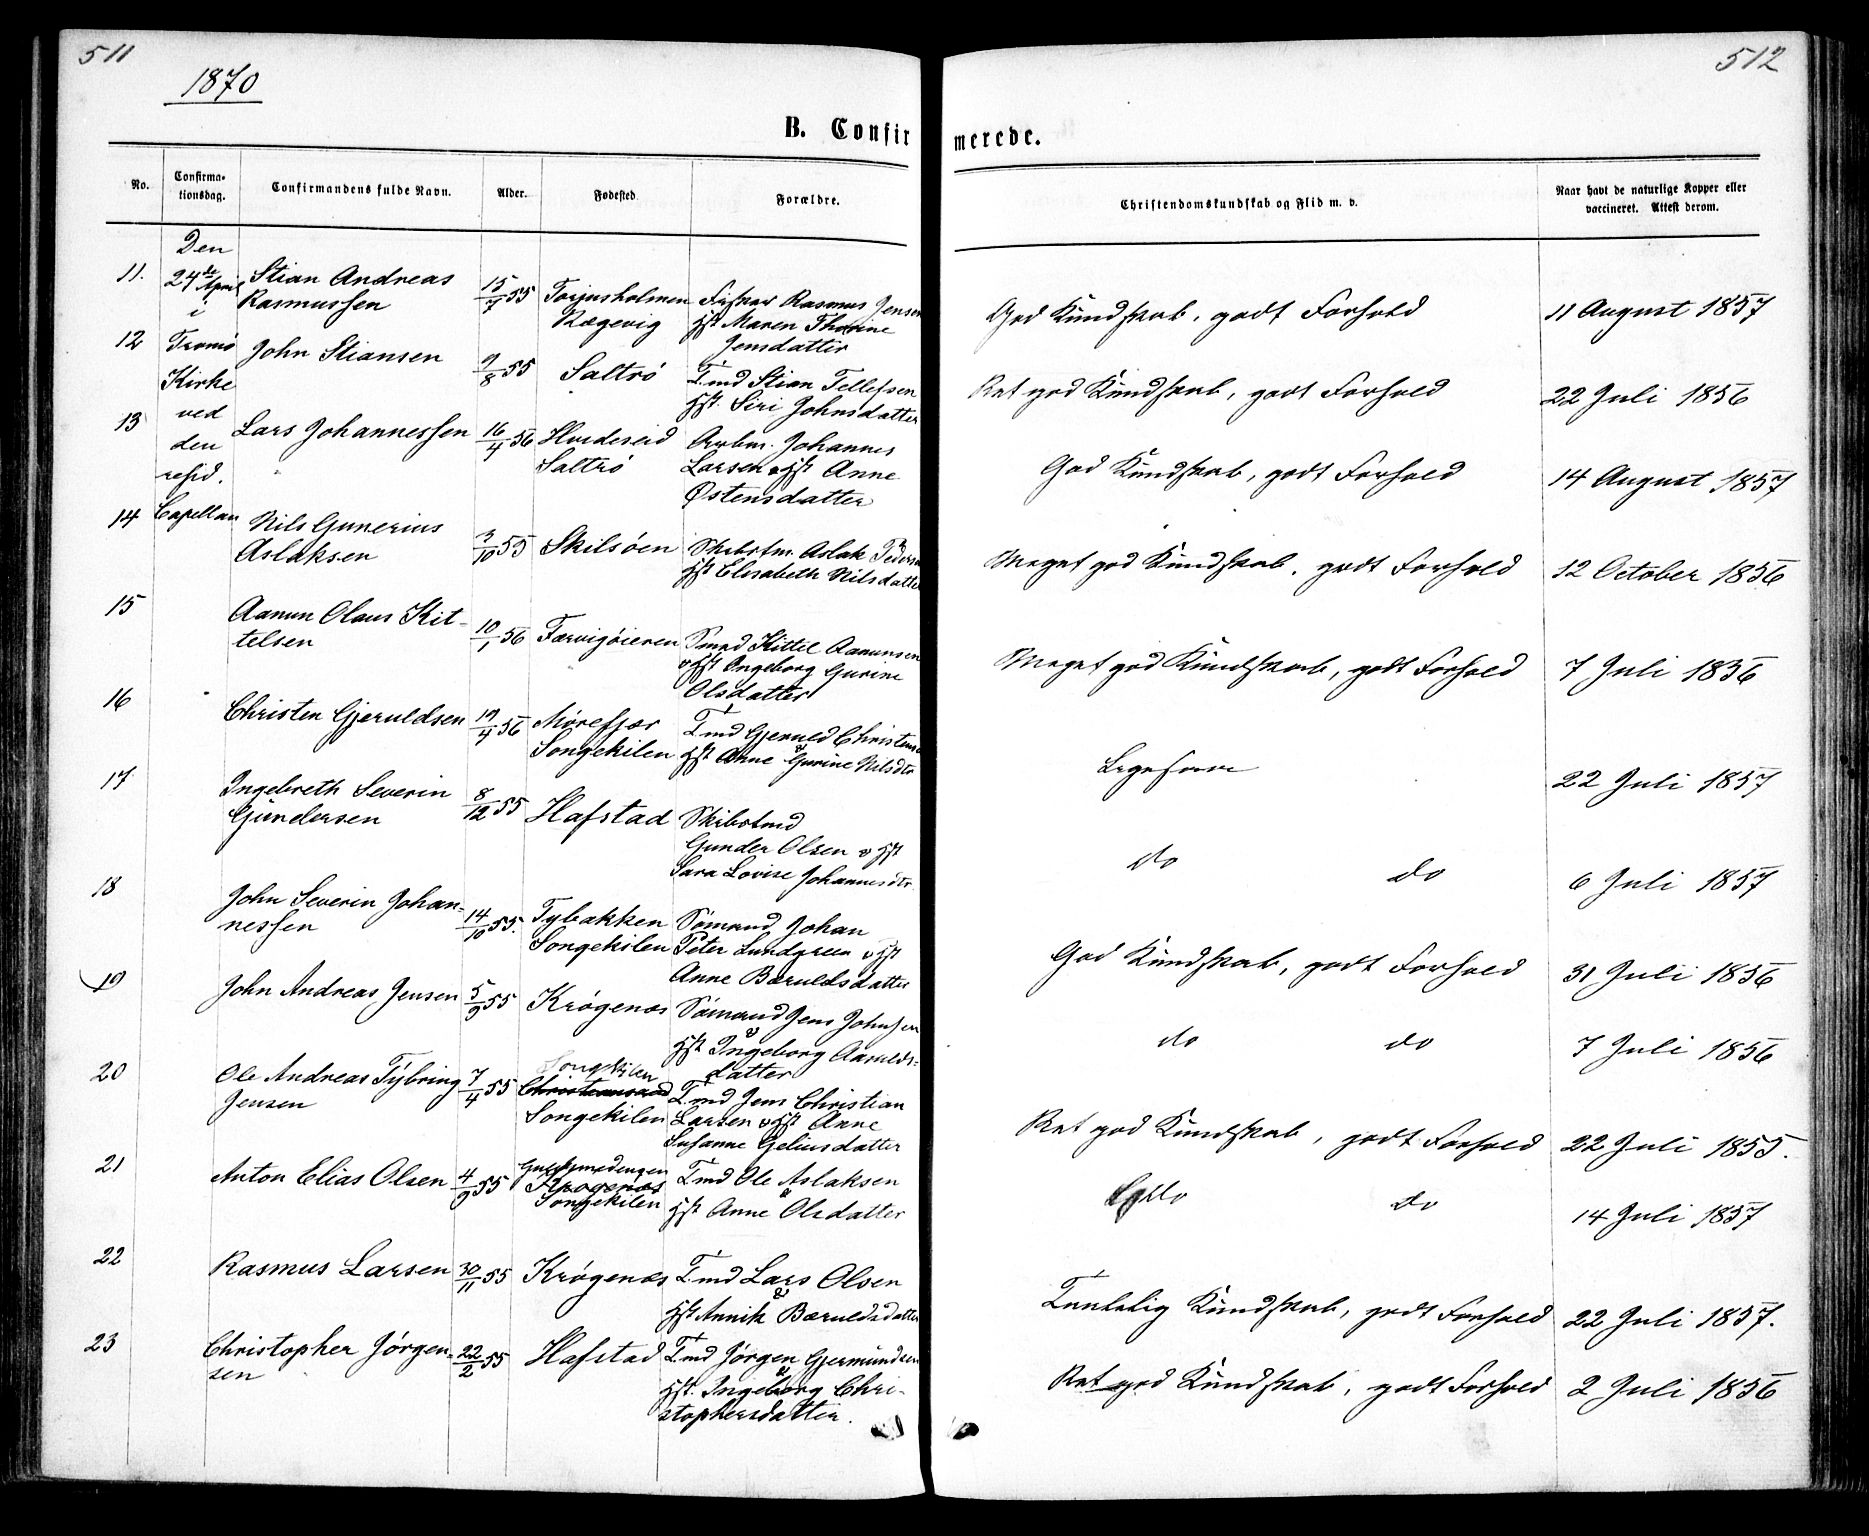 511
512
1870
B. Confirmerede.
No.
Confirma-
tionsdag.
Confirmandens fulde Navn.
Alder.
Fødested.
Forældre.
Christendomskundskab og Flid m. v.
Naar havt de naturlige Kopper eller
vaccineret. Attest derom.
Den
24de April
i
Tromø
Kirke
ved
den
resid.
Capellan
11.
Stian Andreas
Rasmussen
15/7 55
Torjusholmen
Rægevig
Fisker Rasmus Jensen
Hst Maren Thorine
Jensdatter
God Kundskab, godt Forhold
11 August 1857
12
John Stiansen
9/8 55
Saltrø
T.md Stian Tellefsen
Hst. Siri Johnsdatter
Ret god Kundskab, godt Forhold
22 Juli 1856
13
Lars Johannessen
16/4 56
Hvideseid
Saltrø
Arbm. Johannes
Larsen & Hst Anne
Østensdatter
God Kundskab, godt Forhold
14 August 1857
14
Nils Gunerius
Aslaksen
3/10 55
Skilsøen
Skibstm. Aslak Peders
Hst Elisabeth Nilsdatter
Meget god Kundskab, godt Forhold
12 October 1856
15
Aanun Olaus Kit-
telsen
10/1 56
Færvigøieren
Sømd Kittil Aanunsen
& Hst Ingeborg Gurine
Olsdatter
Meget god Kundskab, godt Forhold
7 Juli 1856
16
Christen Gjeruldsen
19/4 56
Mørefjær
Songekilen
T.md Gjeruld Christens
& Hst Anne Gurine Nilsdtr
Ligesaa
22 Juli 1857
17
Ingebreth Severin
Gundersen
8/12 55
Hafstad
Skibstmd
Gunder Olsen & Hst
Sara Lovise Johannesdtr.
do do
6 Juli 1857
18
John Severin Johan-
nessen
14/10 55.
Tybakken
Songekilen
Sømand Johan
Peter Lundgreen & Hst
Anne Bæruldsdatter
God Kundskab, godt Forhold
31 Juli 1856
19
John Andreas Jensen
5/9 55
Krøgenes
Sømand Jens Johnsen
& Hst Ingeborg Aanulds-
datter
do do
7 Juli 1856
20
Ole Andreas Tybring
Jensen
7/4 55
Songekilen
Christiansand
Songekilen
T.md Jens Christian
Larsen & Hst Anne
Susanne Geliusdatter
Ret god Kundskab, godt Forhold
22 Juli 1855.
21
Anton Elias Olsen
4/9 55
Krøgenes
Songekilen
T.md Ole Aslaksen
& Hst Anne Olsdatter
do do
14 Juli 1857
22
Rasmus Larsen
30/11 55
Krøgenes
T.md Lars Olsen
& Hst Annik Bæruldsdatter
Temmelig Kundskab, godt Forhold
22 Juli 1857.
23
Christopher Jørgen-
sen
22/2 55
Hafstad
T.md Jørgen Gjermundsen
& Hst. Ingeborg Chri-
stophersdatter.
Ret god Kundskab, godt Forhold
2 Juli 1856